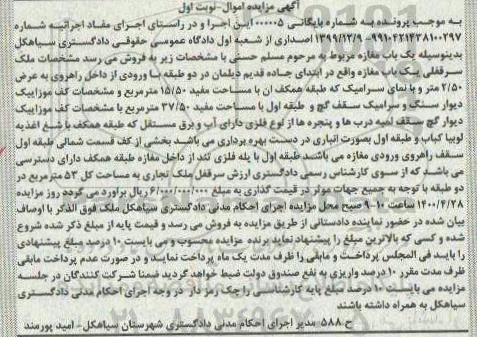 آگهی مزایده اموال-نوبت اول
به موجب پرونده به شماره بایگانی ۰۰۰۰۰۵ این اجرا و در راستای اجرای مفاد اجرائیه شماره
۹۹۱۰۴۲۱۴۲۳۸۱۰۰۲۹۷-۱۳۹۹/۱۲/۹ اصداری از شعبه اول دادگاه عمومی حقوقی دادگستری سیاهکل
بدینوسیله یک باب مغازه مربوط به مرحوم مسلم حسنی با مشخصات زیر به فروش می رسد مشخصات ملک
سرقفلی یک باب مغازه واقع در ابتدای جاده قدیم دیلمان در دو طبقه با ورودی از داخل راهروی به عرض
۲/۵۰ متر و با نمای سرامیک که طبقه همکف ان با مساحت مفید ۱۵/۵۰ مترمربع و مشخصات کف موزاییک
دیوار سنگ و سرامیک سقف گچ و طبقه اول با مساحت مفید ۳۷/۵۰ مترمربع با مشخصات کف موزاییک
دیوار گچ سقف لمبه درب ها و پنجره ها از نوع فلزی دارای آب و برق مستقل که طبقه همکف با شغل اغذیه
لوبیا کباب و طبقه اول بصورت انباری در دست بهره برداری می باشد بخشی از کف قسمت شمالی طبقه اول
سقف راهروی ورودی مغازه می باشد طبقه اول با پله فلزی تند از داخل مغازه طبقه همکف دارای دسترسی
می باشد که از سوی کارشناس رسمی دادگستری ارزش سرقفل ملک تجاری به مساحت کل ۵۳ مترمربع در
دو طبقه با توجه به جمیع جهات موثر در قیمت گذاری به مبلغ ۶/۰۰۰/۰۰۰/۰۰۰ ریال براورد می گردد روز مزایده
۱۴۰۰/۴/۲۸ ساعت ۱۰-۹ صبح محل مزایده اجرای احکام مدنی دادگستری سیاهکل ملک فوق الذکر با اوصاف
بیان شده در حضور نماینده دادستانی از طریق مزایده به فروش می رسد و قیمت پایه از مبلغ ذکر شده شروع
شده و کسی که بالاترین مبلغ را پیشنهاد نماید برنده مزایده محسوب و می بایست ۱۰ درصد مبلغ پیشنهادی
را باید فی المجلس پرداخت و مابقی را ظرف مدت یک ماه پرداخت نمایـد و در صورت عدم پرداخت مابقی
ظرف مدت مقرر ۱۰ درصد واریزی به نفع صندوق دولت ضبط خواهد گردید ضمنا شرکت کنندگان در جلسه
مزایده می بایست ۱۰ درصد مبلغ پایه کارشناسی را چک رمز دار در وجه اجرای احکام مدنی دادگستری
سیاهکل به همراه داشته باشند
ح.۵۸۸ مدیر اجرای احکام مدنی دادگستری شهرستان سیاهکل- امید پورمند